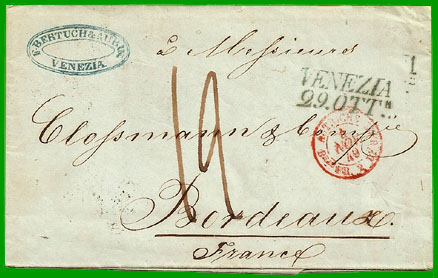 F. BERTUCH &
VENEZIA
à Messieurs
VENEZIA
29. OTT.
Clossmann & Comp.ie
19
NOV
49
Bordeaux.
France